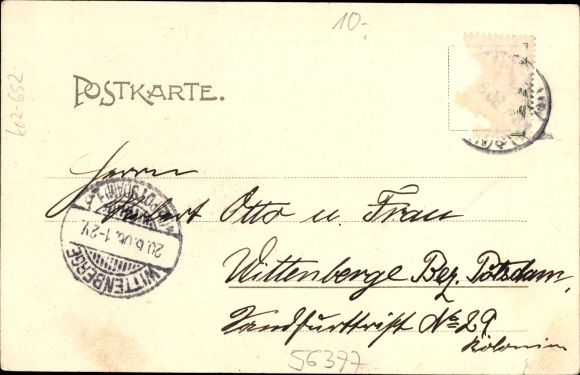 10.-
k02-652
POSTKARTE.
Herrn
Otto u. Frau
Wittenberge Bez. Potsdam,
No 29
Kolonie
WITTENBERGE
20.6.06. 1-2V
56377